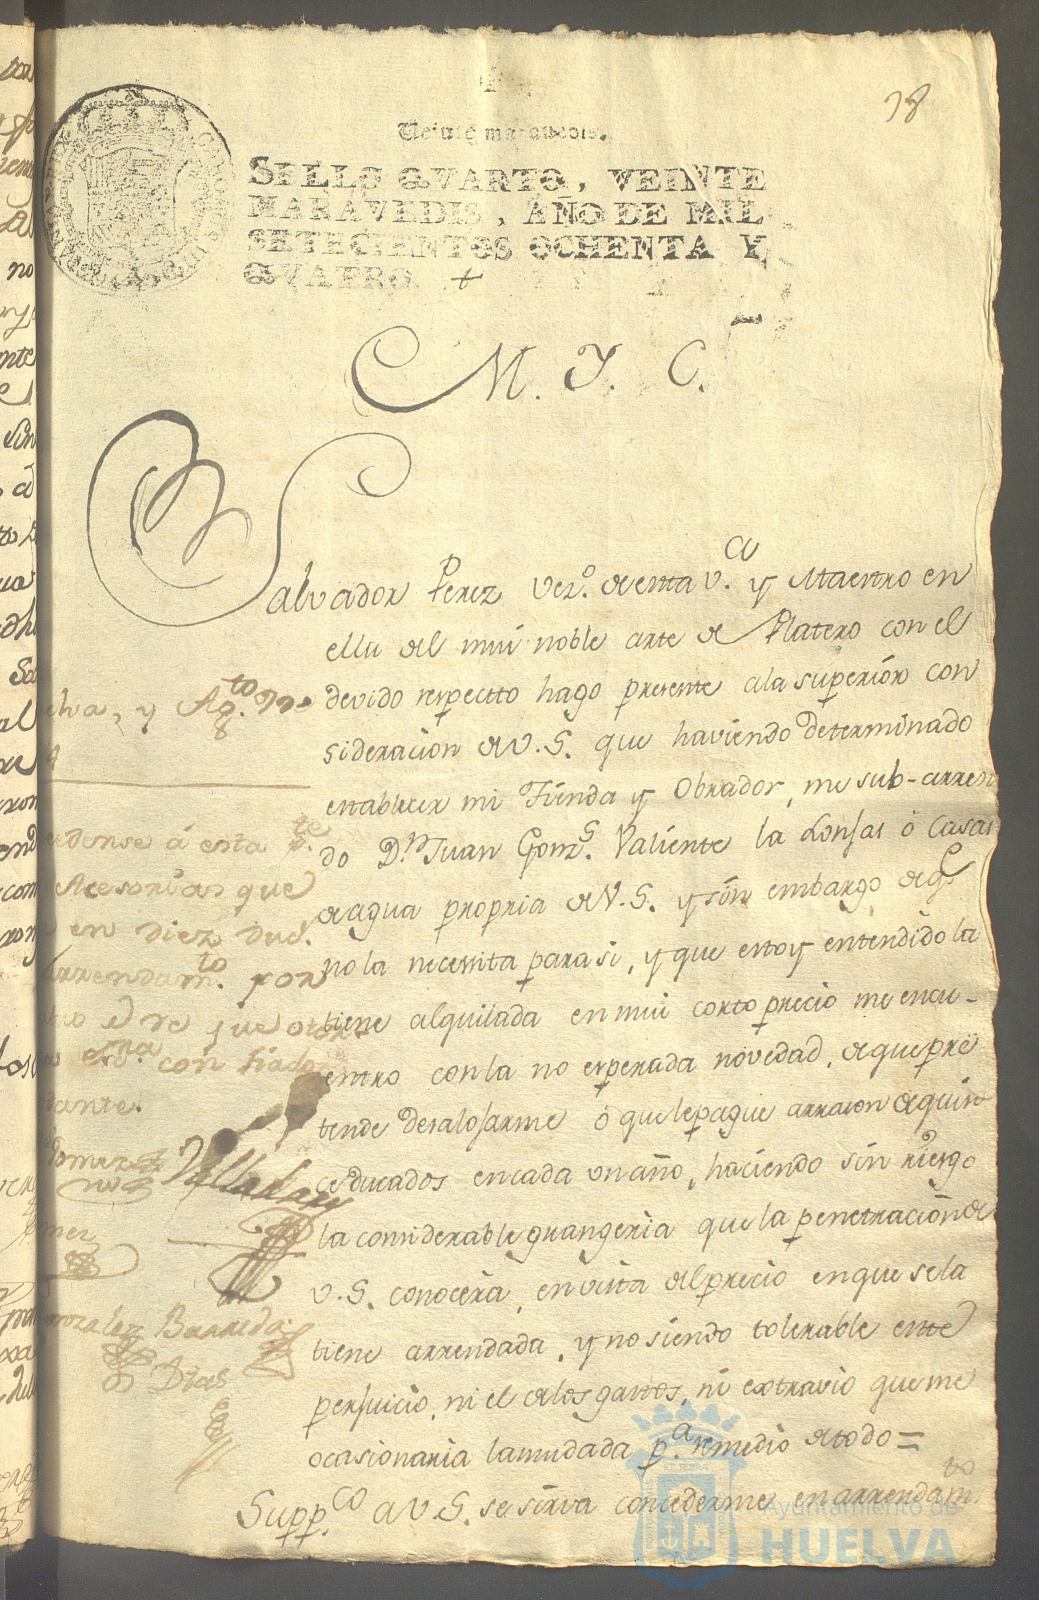 78
Veinte maravedis.
SELLO QVARTO, VEINTE
MARAVEDIS, AÑO DE MIL
SETECIENTOS OCHENTA Y
QVATRO.
M. Y. C.
Salvador Perez vez.º de esta v.ª y Maestro en
ella del mui noble arte de Platero con el
devido respectto hago presente a la superiór con
sideracion de V. S. que haviendo determinado
establecer mi Tienda y Obrador, me sub-arren
do D.n Juan Gonz.s Valiente la Lonjas ó Casas
de agua propria de V. S. y sin embargo de q.e
no la necesita para si, y que estoy entendido la
tiene alquilada en mui corto precio me encu-
entro con la no esperada novedad, de que pre
tende desalojarme ó que le pague arrazon de quin
ce ducados en cada un año, haciendo sin riesgo
la considerable grangeria que la penetracion de
V. S. conocerá, en vista del precio en que se la
tiene arrendada, y no siendo tolerable este
perjuicio, ni el de los gastos, ni extravio que me
ocasionaria la mudada p.a remedio de todo =
Supp.co a V. S. se sirva concederme en arrendam.to
elva, y Ag.to
4
edense á esta p.te
Acesorias que
en diez duc.s
arrendam.to por
que otor
con fiado
tante.
Gomez
Villaday
mez
onzalez Barreda
Dias
Ayuntamiento de
HUELVA